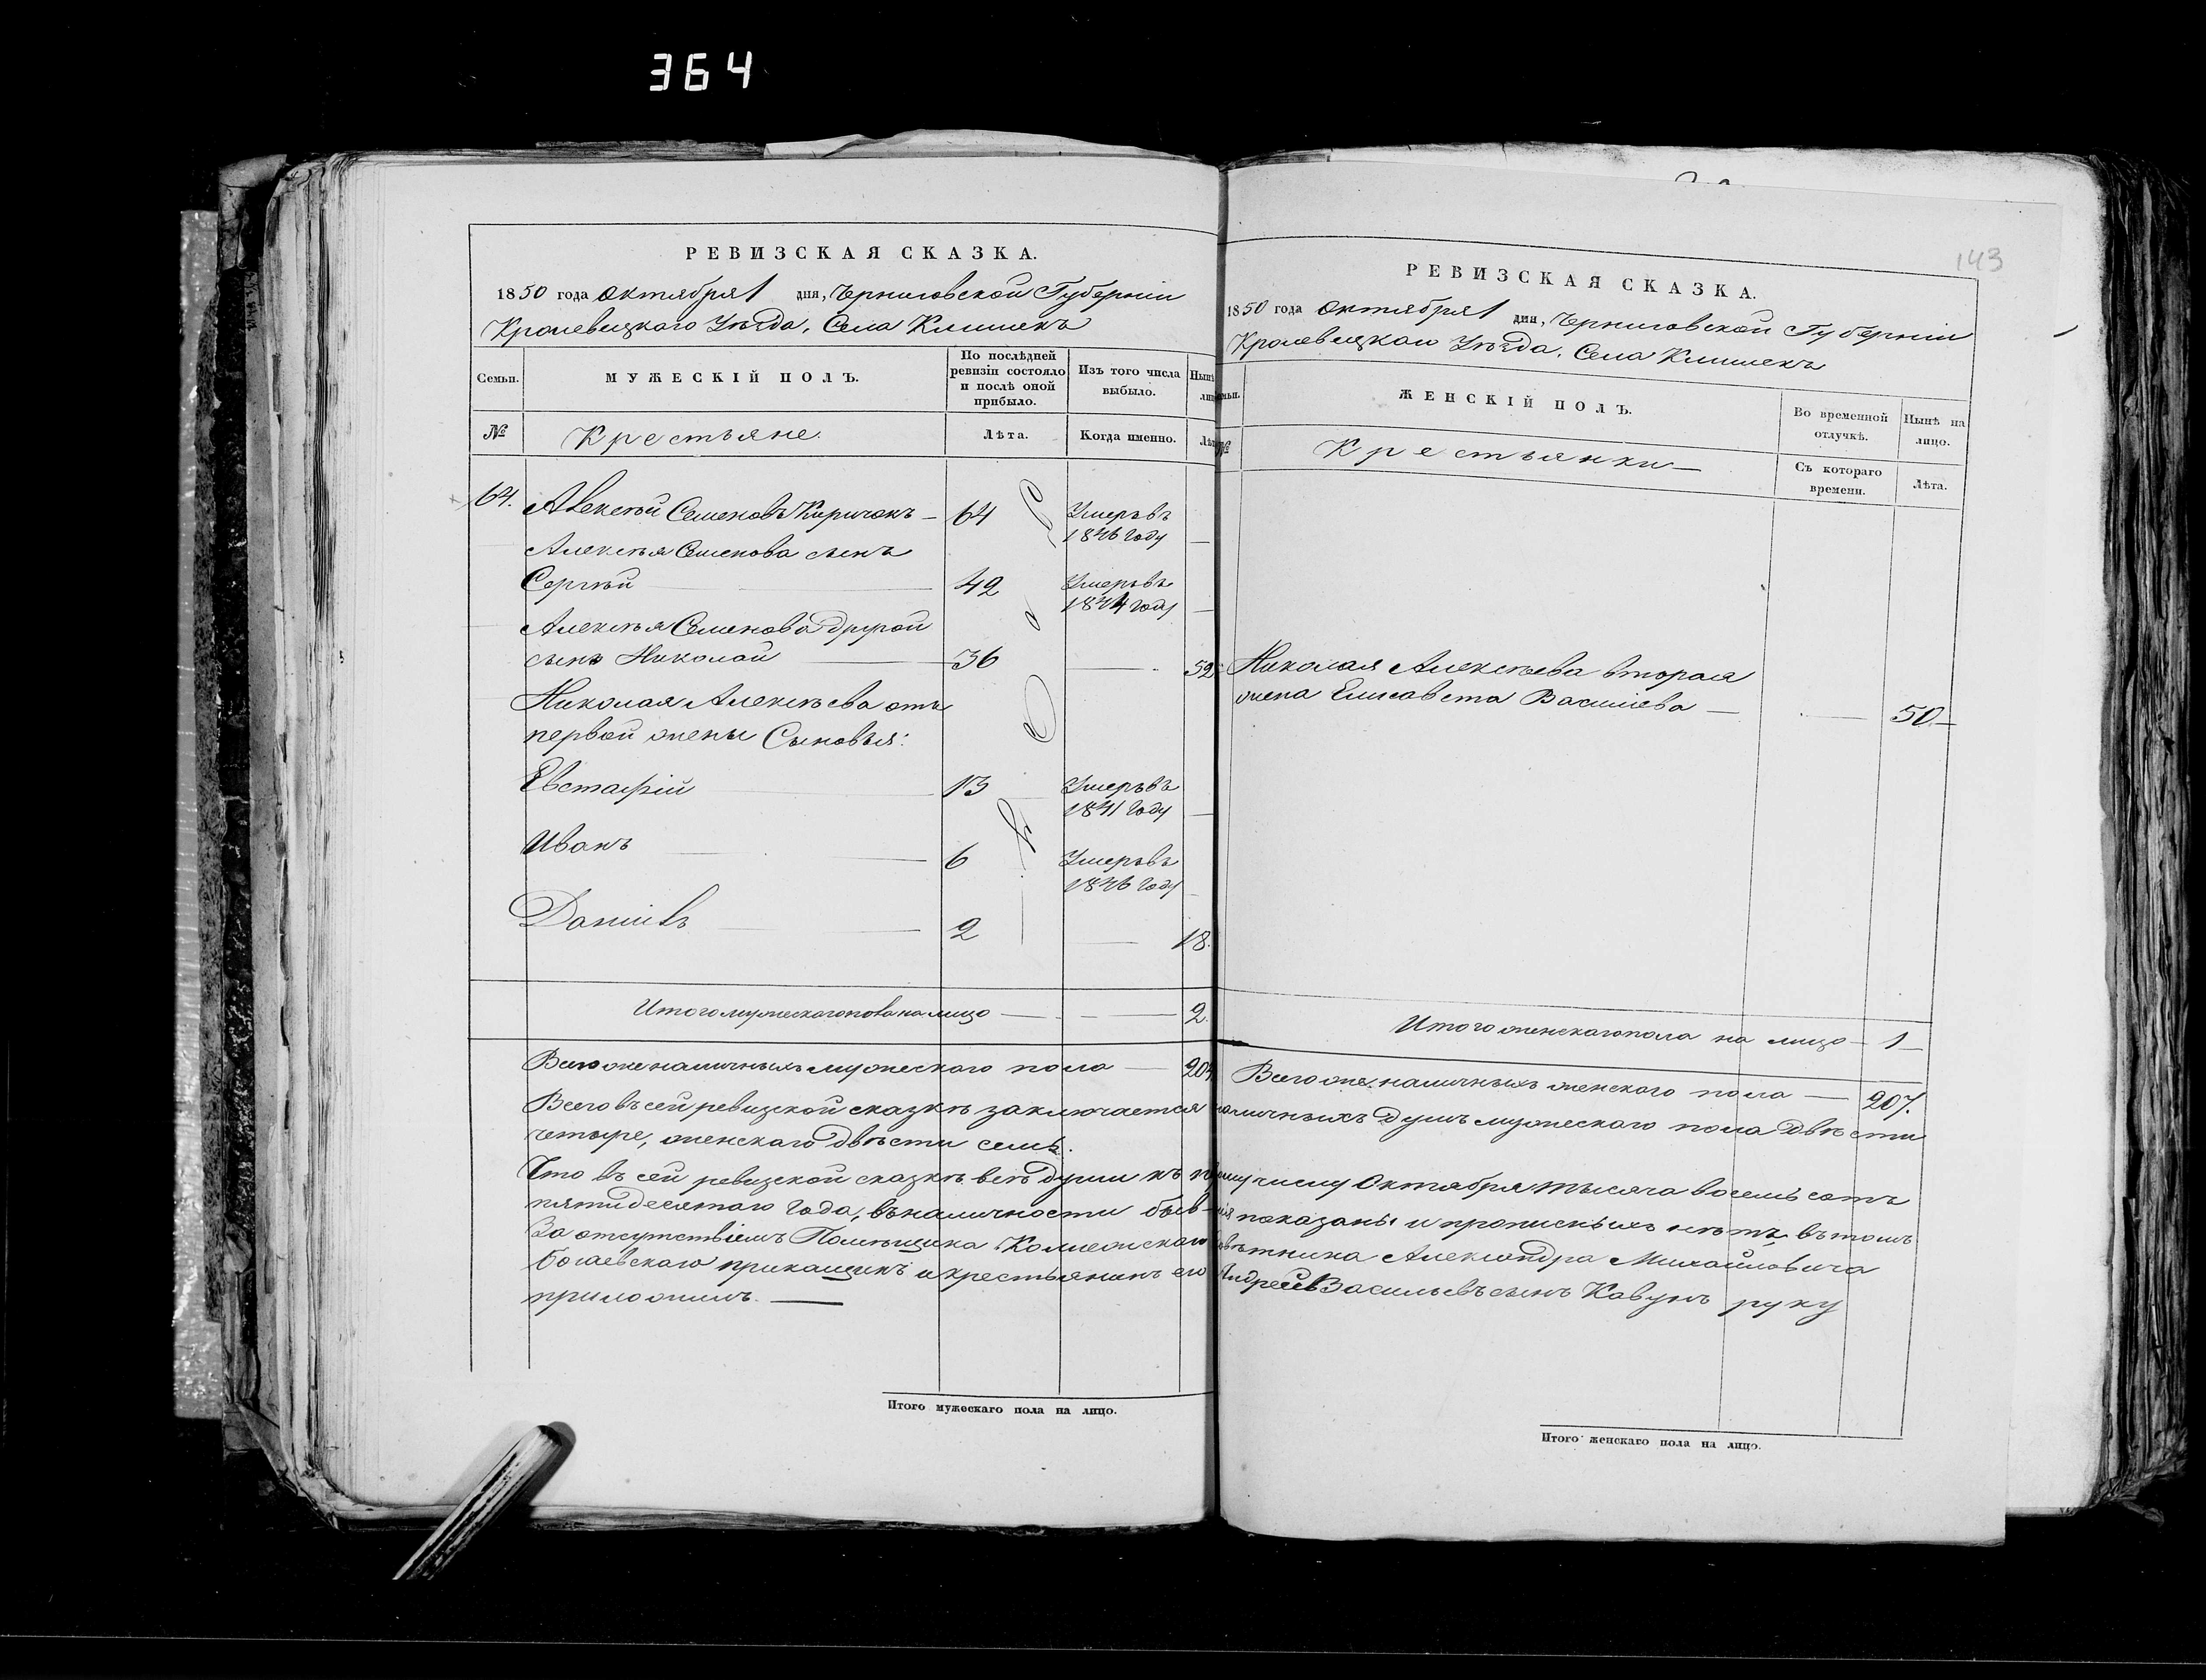 364
РЕВИЗСКАЯ СКАЗКА.
1850 года Октября 1 дня, Черниговской Губерніи
Кролевецкаго Уѣзда, Села Клишекъ
Семьи.
МУЖЕСКІЙ ПОЛЪ.
По послѣдней
ревизіи состояло
и послѣ оной
прибыло.
Изъ того числа
выбыло.
Нынѣ
№
Крестьяне.
Лѣта.
Когда именно.
64. Алексѣй Семеновъ Киричокъ — 64 Умеръ въ
1846 году —
Алексѣя Семенова сынъ
Сергѣй 42 Умеръ въ
1844 году —
Алексѣя Семенова другой
сынъ Николай 36 — 52
Николая Алексѣева отъ
первой жены Сыновья:
Евстафій 13 Умеръ въ
1841 году —
Иванъ 6 Умеръ въ
1846 году
Даніилъ 2 — 18.
Итого мужескаго пола на лицо — 2.
Всего же наличныхъ мужескаго пола — 204
143
РЕВИЗСКАЯ СКАЗКА.
1850 года Октября 1 дня, Черниговской Губерніи
Кролевецкаго Уѣзда, Села Клишекъ
ЖЕНСКІЙ ПОЛЪ.
Во временной
отлучкѣ.
Нынѣ на
лицо.
№
Крестьянки —
Съ котораго
времени.
Лѣта.
Николая Алексѣева вторая
жена Елисавета Васильева — — 50. —
Итого женскаго пола на лицо — 1 —
Всего же наличныхъ женскаго пола — 207.
Всего въ сей ревизской сказкѣ заключается наличныхъ душъ мужескаго пола двѣсти
четыре, женскаго двѣсти семь.
Что въ сей ревизской сказкѣ всѣ души къ первому числу Октября тысяча восемь сотъ
пятидесятаго года, въ наличности бывшія показаны и прописныхъ нѣтъ, въ томъ
За отсутствіемъ Помѣщика Коллежскаго Совѣтника Александра Михайловича
прикащикъ и крестьянинъ его Андрей Васильевъ сынъ Кавунъ руку
приложилъ. —
Итого мужескаго пола на лицо.
Итого женскаго пола на лицо.